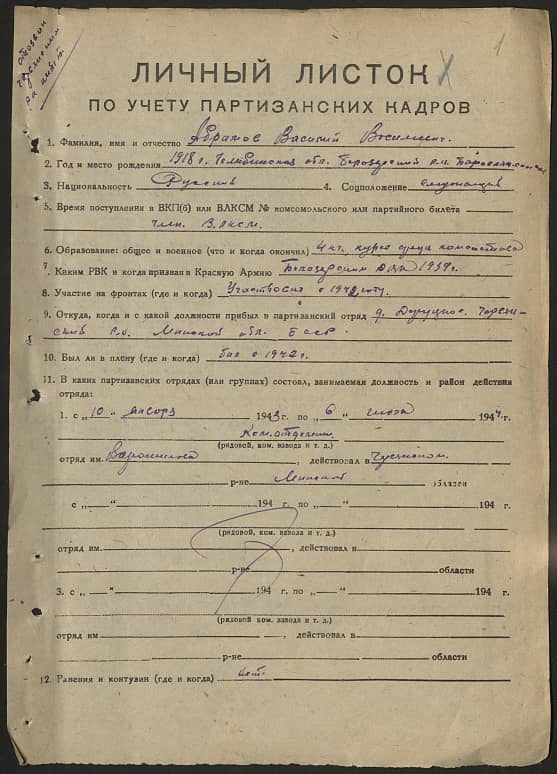 1
ЛИЧНЫЙ ЛИСТОК
ПО УЧЕТУ ПАРТИЗАНСКИХ КАДРОВ
1. Фамилия, имя и отчество Абрамов Василий
2. Год и место рождения 1918 г. Челябинская обл.
3. Национальность Русский 4. Соцположение служащий
5. Время поступления в ВКП(б) или ВЛКСМ № комсомольского или партийного билета
член ВЛКСМ.
6. Образование: общее и военное (что и когда окончил)
7. Каким РВК и когда призван в Красную Армию 1939 г.
8. Участие на фронтах (где и когда) Участвовал с 1942 году.
9. Откуда, когда и с какой должности прибыл в партизанский отряд д.
Минской обл. БССР
10. Был ли в плену (где и когда) был с 1942 г.
11. В каких партизанских отрядах (или группах) состоял, занимаемая должность и район действия
отряда:
1. с „ 10 “ января 1943 г. по „ 6 “ июля 1944 г.
Ком. отделения
(рядовой, ком. взвода и т. д.)
отряд им. Ворошилова, действовал в
р-не Минской области
с „ “ 194 г. по „ “ 194 г.
(рядовой ком. взвода и т. д.)
отряд им. , действовал в
р-не области
3. с „ “ 194 г. по „ “ 194 г.
(рядовой ком. взвода и т. д.)
отряд им , действовал в
р-не области
12. Ранения и контузии (где и когда) нет.